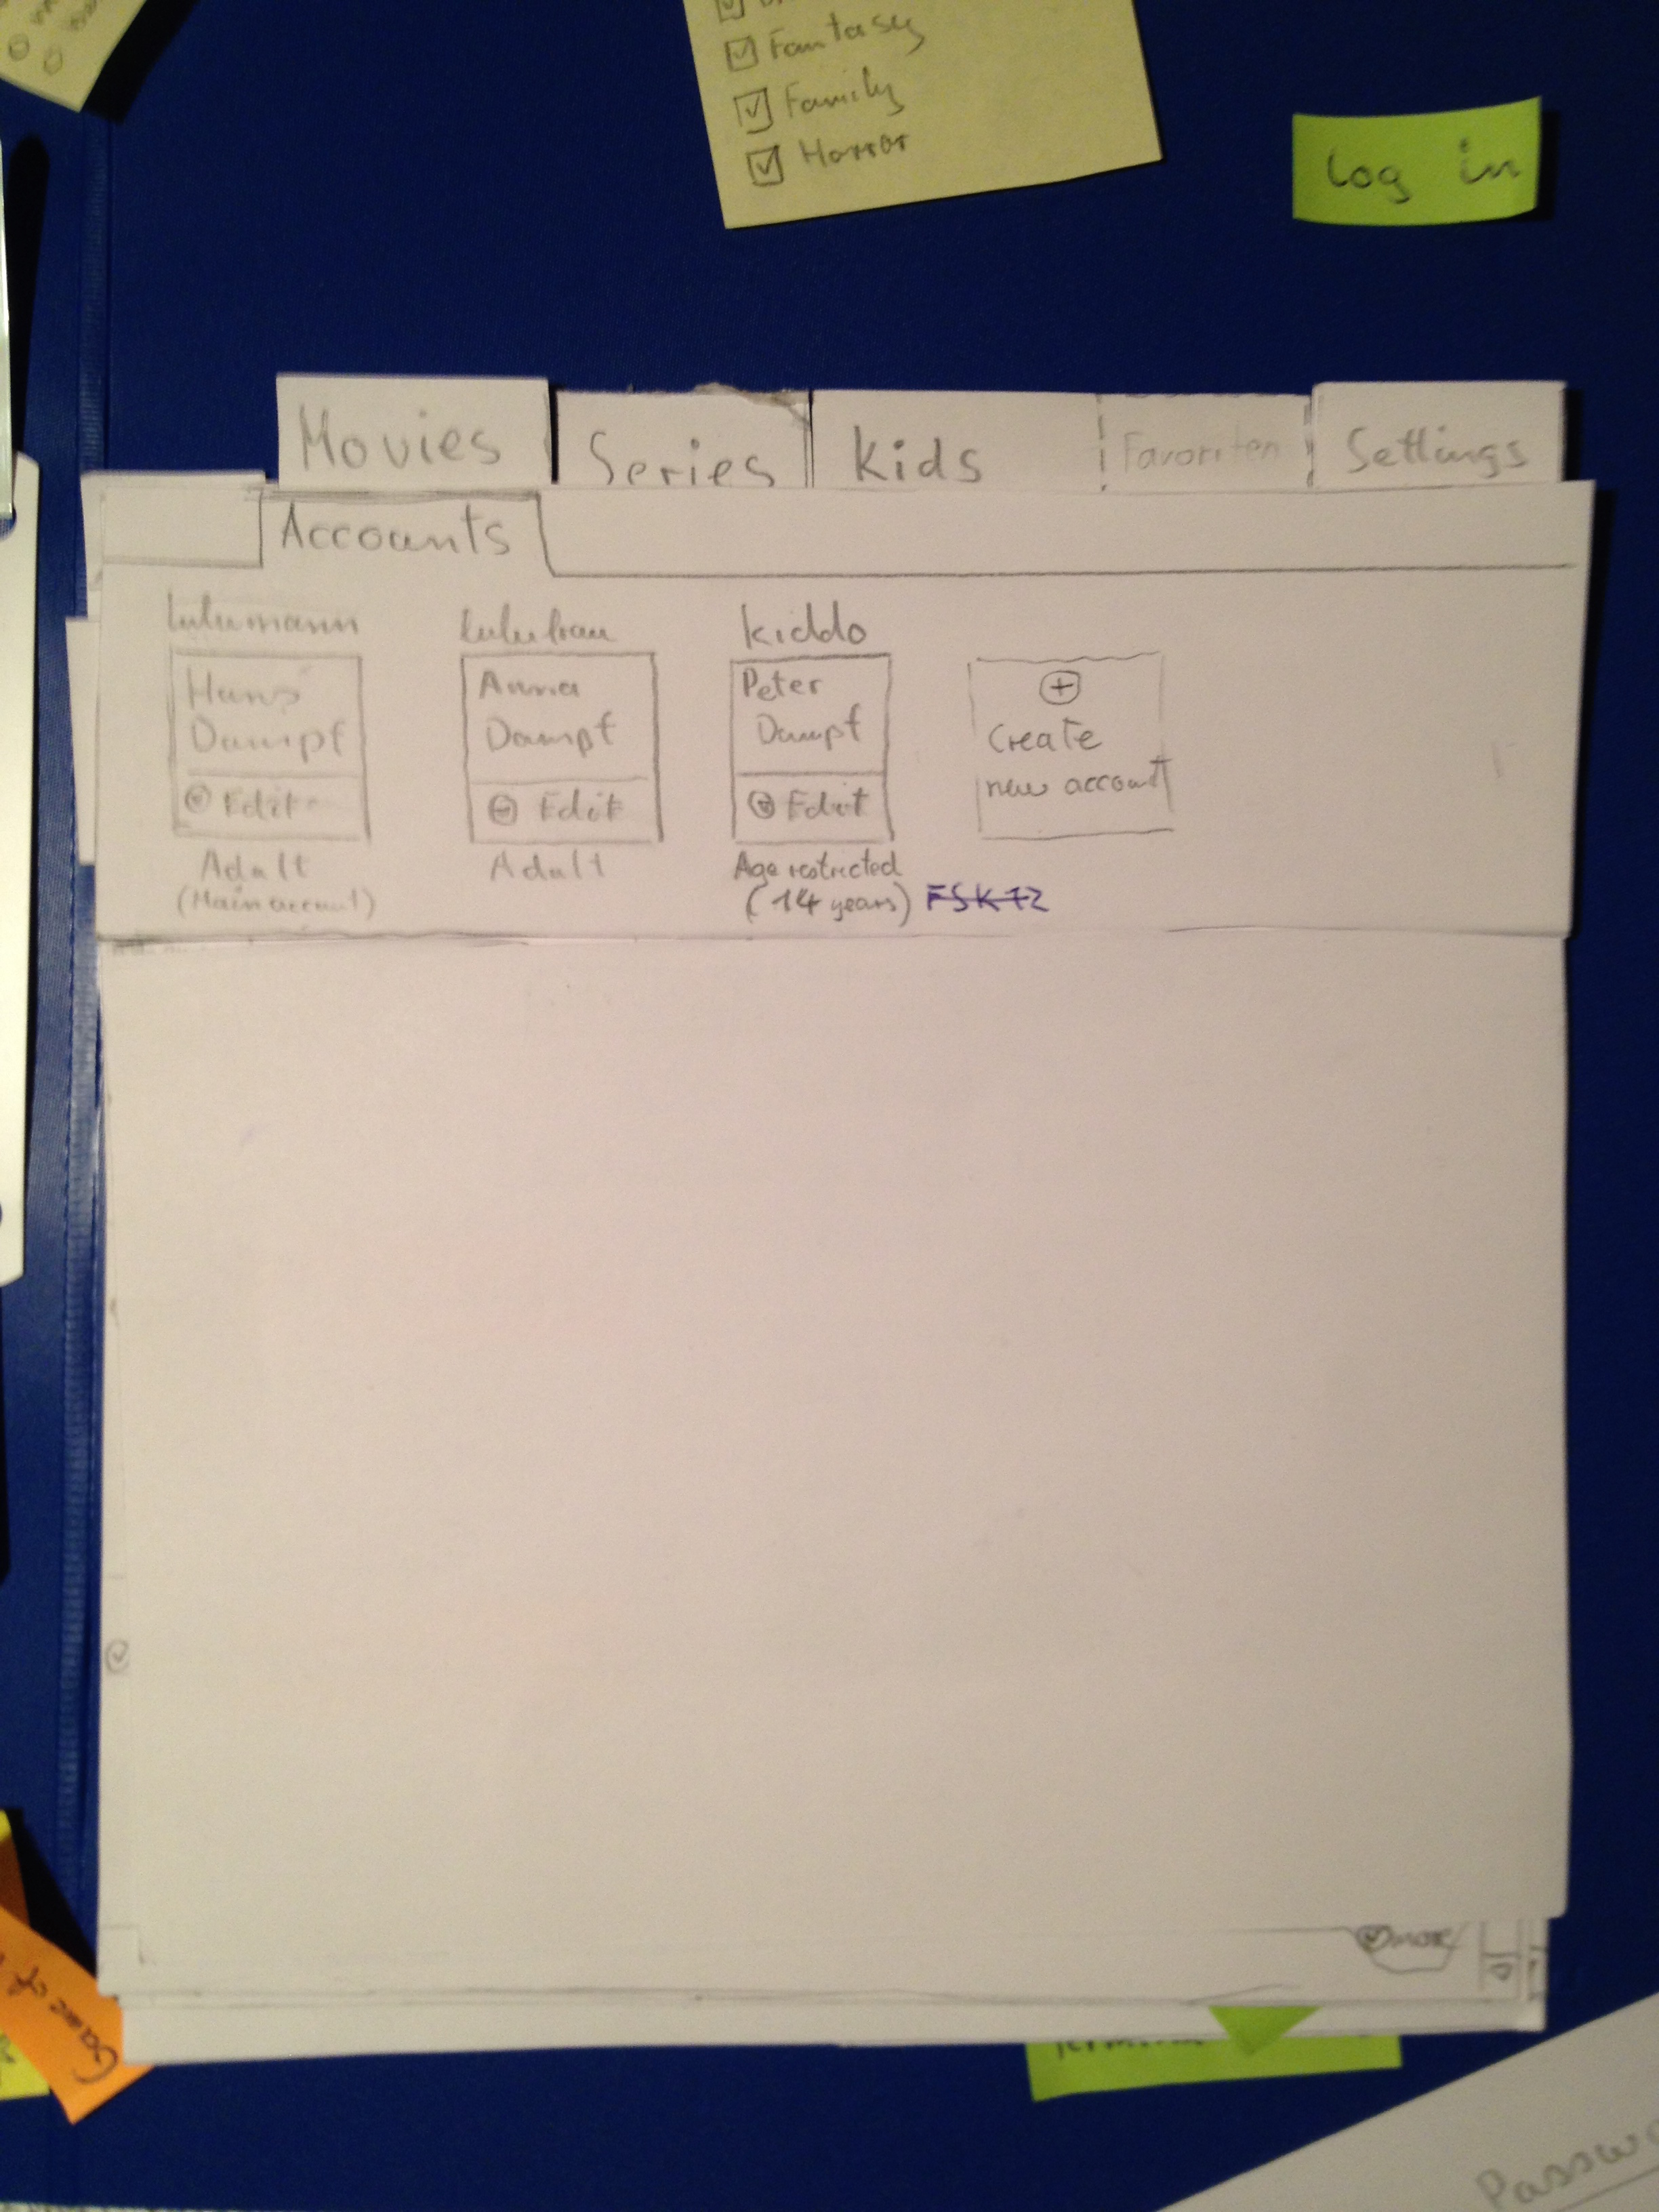 Fantasy
Family
Horror
Log in
Movies
Series
Kids
Favoriten
Settings
Accounts
Lulumann
Hans
Dampf
Edit
Adult
(Main account)
Lulufrau
Anna
Dampf
Edit
Adult
Kiddo
Peter
Dampf
Edit
Age restricted
(14 years) FSK 12
Create
new account
more
Game of